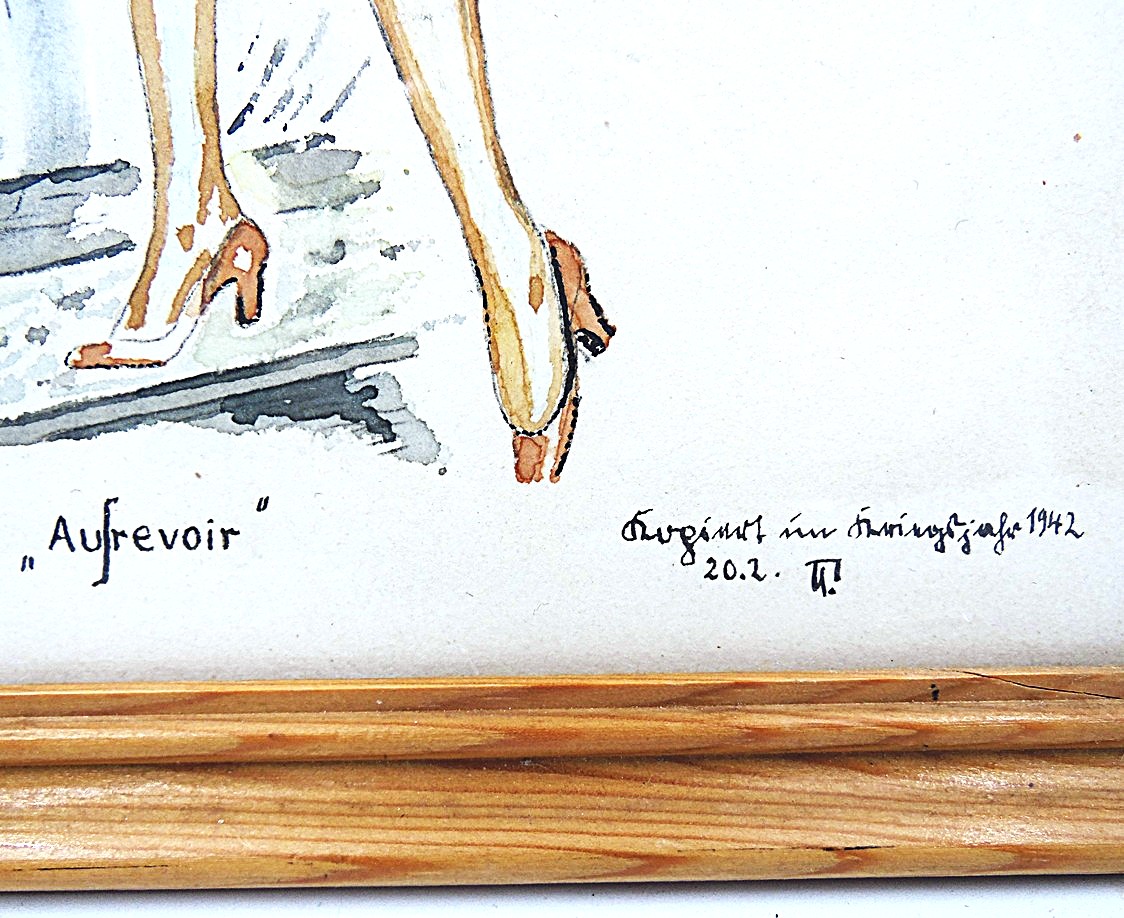 „Aufrevoir"
Kopiert im Kriegsjahr 1942
20.2.